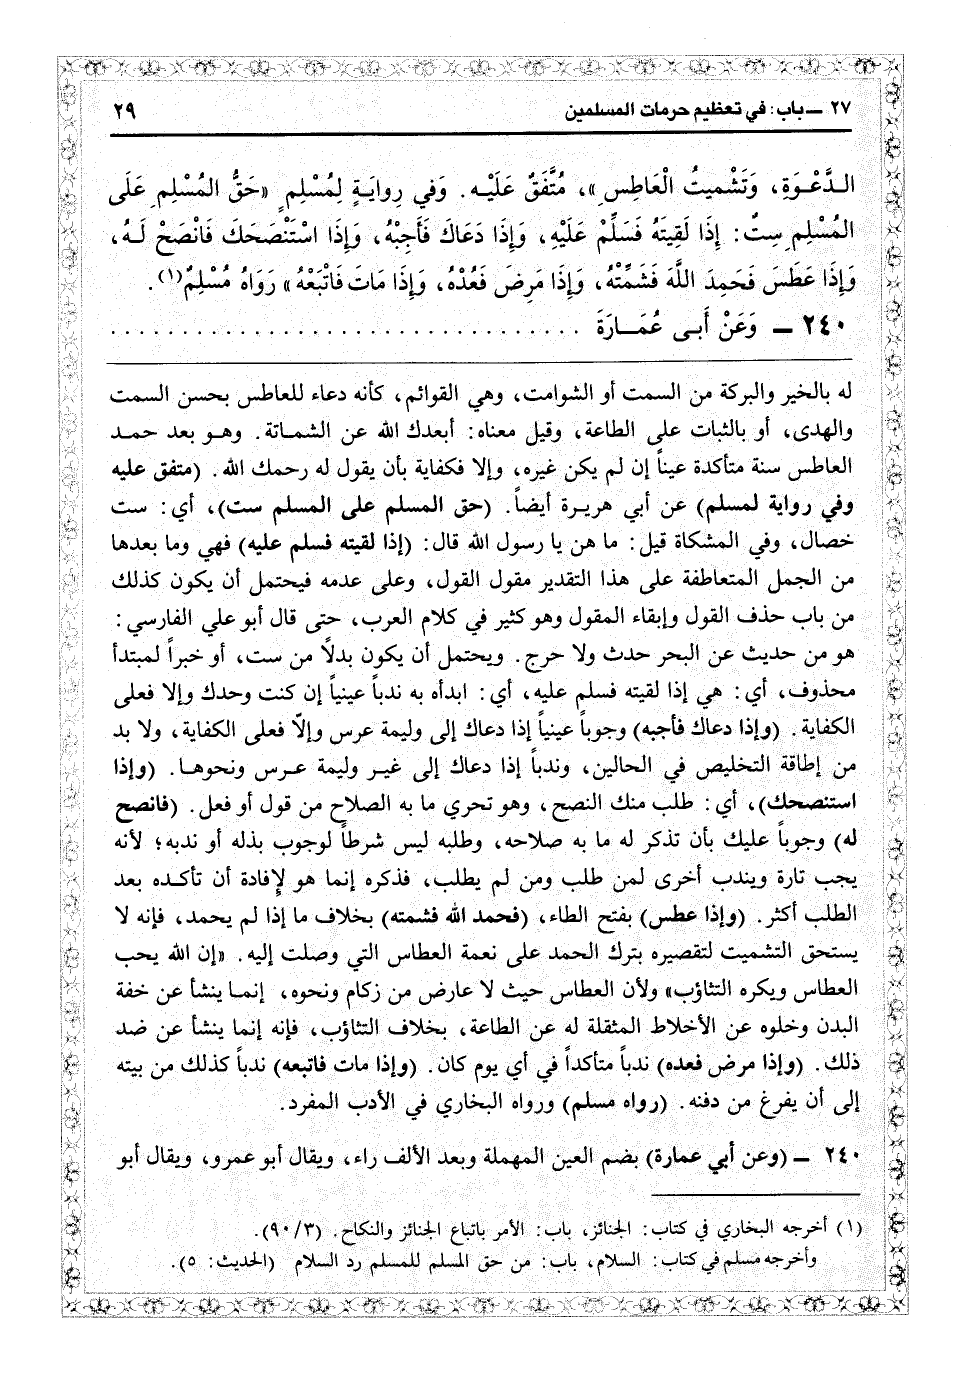 ٢٧ ــ باب: في تعظيم حرمات المسلمين
٢٩
الـدَّعْـوَةِ، وَتَشْمِيتُ الْعَاطِسِ»، مُتَّفَقٌ عَلَيْـهِ. وَفي رِوايَـةٍ لِمُسْلِمٍ «حَقُّ المُسْلِمِ عَلَى
المُسْلِمِ سِتٌ: إِذَا لَقِيتَهُ فَسَلِّمْ عَلَيْهِ، وَإِذَا دَعَاكَ فَأَجِبْهُ، وَإِذَا اسْتَنْصَحَكَ فَانْصَحْ لَـهُ،
وَإِذَا عَطَسَ فَحَمِدَ اللَّهَ فَشَمِّتْهُ، وَإِذَا مَرِضَ فَعُدْهُ، وَإِذَا مَاتَ فَاتْبَعْهُ» رَوَاهُ مُسْلِمٌ(١).
٢٤٠ ــ وَعَنْ أَبـي عُمَـارَةَ . . . . . . . . . . . . . . . . . . . . . . . . . . . . . . . . .
له بالخير والبركة من السمت أو الشوامت، وهي القوائم، كأنه دعاء للعاطس بحسن السمت
والهدى، أو بالثبات على الطاعة، وقيل معناه: أبعدك الله عن الشماتة. وهـو بعد حمـد
العاطس سنة متأكدة عيناً إن لم يكن غيره، وإلا فكفاية بأن يقول له رحمك الله. (متفق عليه
وفي رواية لمسلم) عن أبي هريـرة أيضاً. (حق المسلم على المسلم ست)، أي: ست
خصال، وفي المشكاة قيل: ما هن يا رسول الله قال: (إذا لقيته فسلم عليه) فهي وما بعدها
من الجمل المتعاطفة على هذا التقدير مقول القول، وعلى عدمه فيحتمل أن يكون كذلك
من باب حذف القول وإبقاء المقول وهو كثير في كلام العرب، حتى قال أبو علي الفارسي:
هو من حديث عن البحر حدث ولا حرج. ويحتمل أن يكون بدلاً من ست، أو خبراً لمبتدأ
محذوف، أي: هي إذا لقيته فسلم عليه، أي: ابدأه به ندباً عينياً إن كنت وحدك وإلا فعلى
الكفاية. (وإذا دعاك فأجبه) وجوباً عينياً إذا دعاك إلى وليمة عرس وإلاّ فعلى الكفاية، ولا بد
من إطاقة التخليص في الحالين، وندباً إذا دعاك إلى غيـر وليمة عـرس ونحوهـا. (وإذا
استنصحك)، أي: طلب منك النصح، وهو تحري ما به الصلاح من قول أو فعل. (فانصح
له) وجوباً عليك بأن تذكر له ما به صلاحه، وطلبه ليس شرطاً لوجوب بذله أو ندبه؛ لأنه
يجب تارة ويندب أخرى لمن طلب ومن لم يطلب، فذكره إنما هو لإفادة أن تأكـده بعد
الطلب أكثر. (وإذا عطس) بفتح الطاء، (فحمد الله فشمته) بخلاف ما إذا لم يحمد، فإنه لا
يستحق التشميت لتقصيره بترك الحمد على نعمة العطاس التي وصلت إليه. «إن الله يحب
العطاس ويكره التثاؤب» ولأن العطاس حيث لا عارض من زكام ونحوه، إنمـا ينشأ عن خفة
البدن وخلوه عن الأخلاط المثقلة له عن الطاعة، بخلاف التثاؤب، فإنه إنما ينشأ عن ضد
ذلك. (وإذا مرض فعده) ندباً متأكداً في أي يوم كان. (وإذا مات فاتبعه) ندباً كذلك من بيته
إلى أن يفرغ من دفنه. (رواه مسلم) ورواه البخاري في الأدب المفرد.
٢٤٠ ــ (وعن أبي عمارة) بضم العين المهملة وبعد الألف راء، ويقال أبو عمرو، ويقال أبو
(١) أخرجه البخاري في كتاب: الجنائز، باب: الأمر باتباع الجنائز والنكاح. (٩٠/٣).
وأخرجه مسلم في كتاب: السلام، باب: من حق المسلم للمسلم رد السلام (الحديث: ٥).